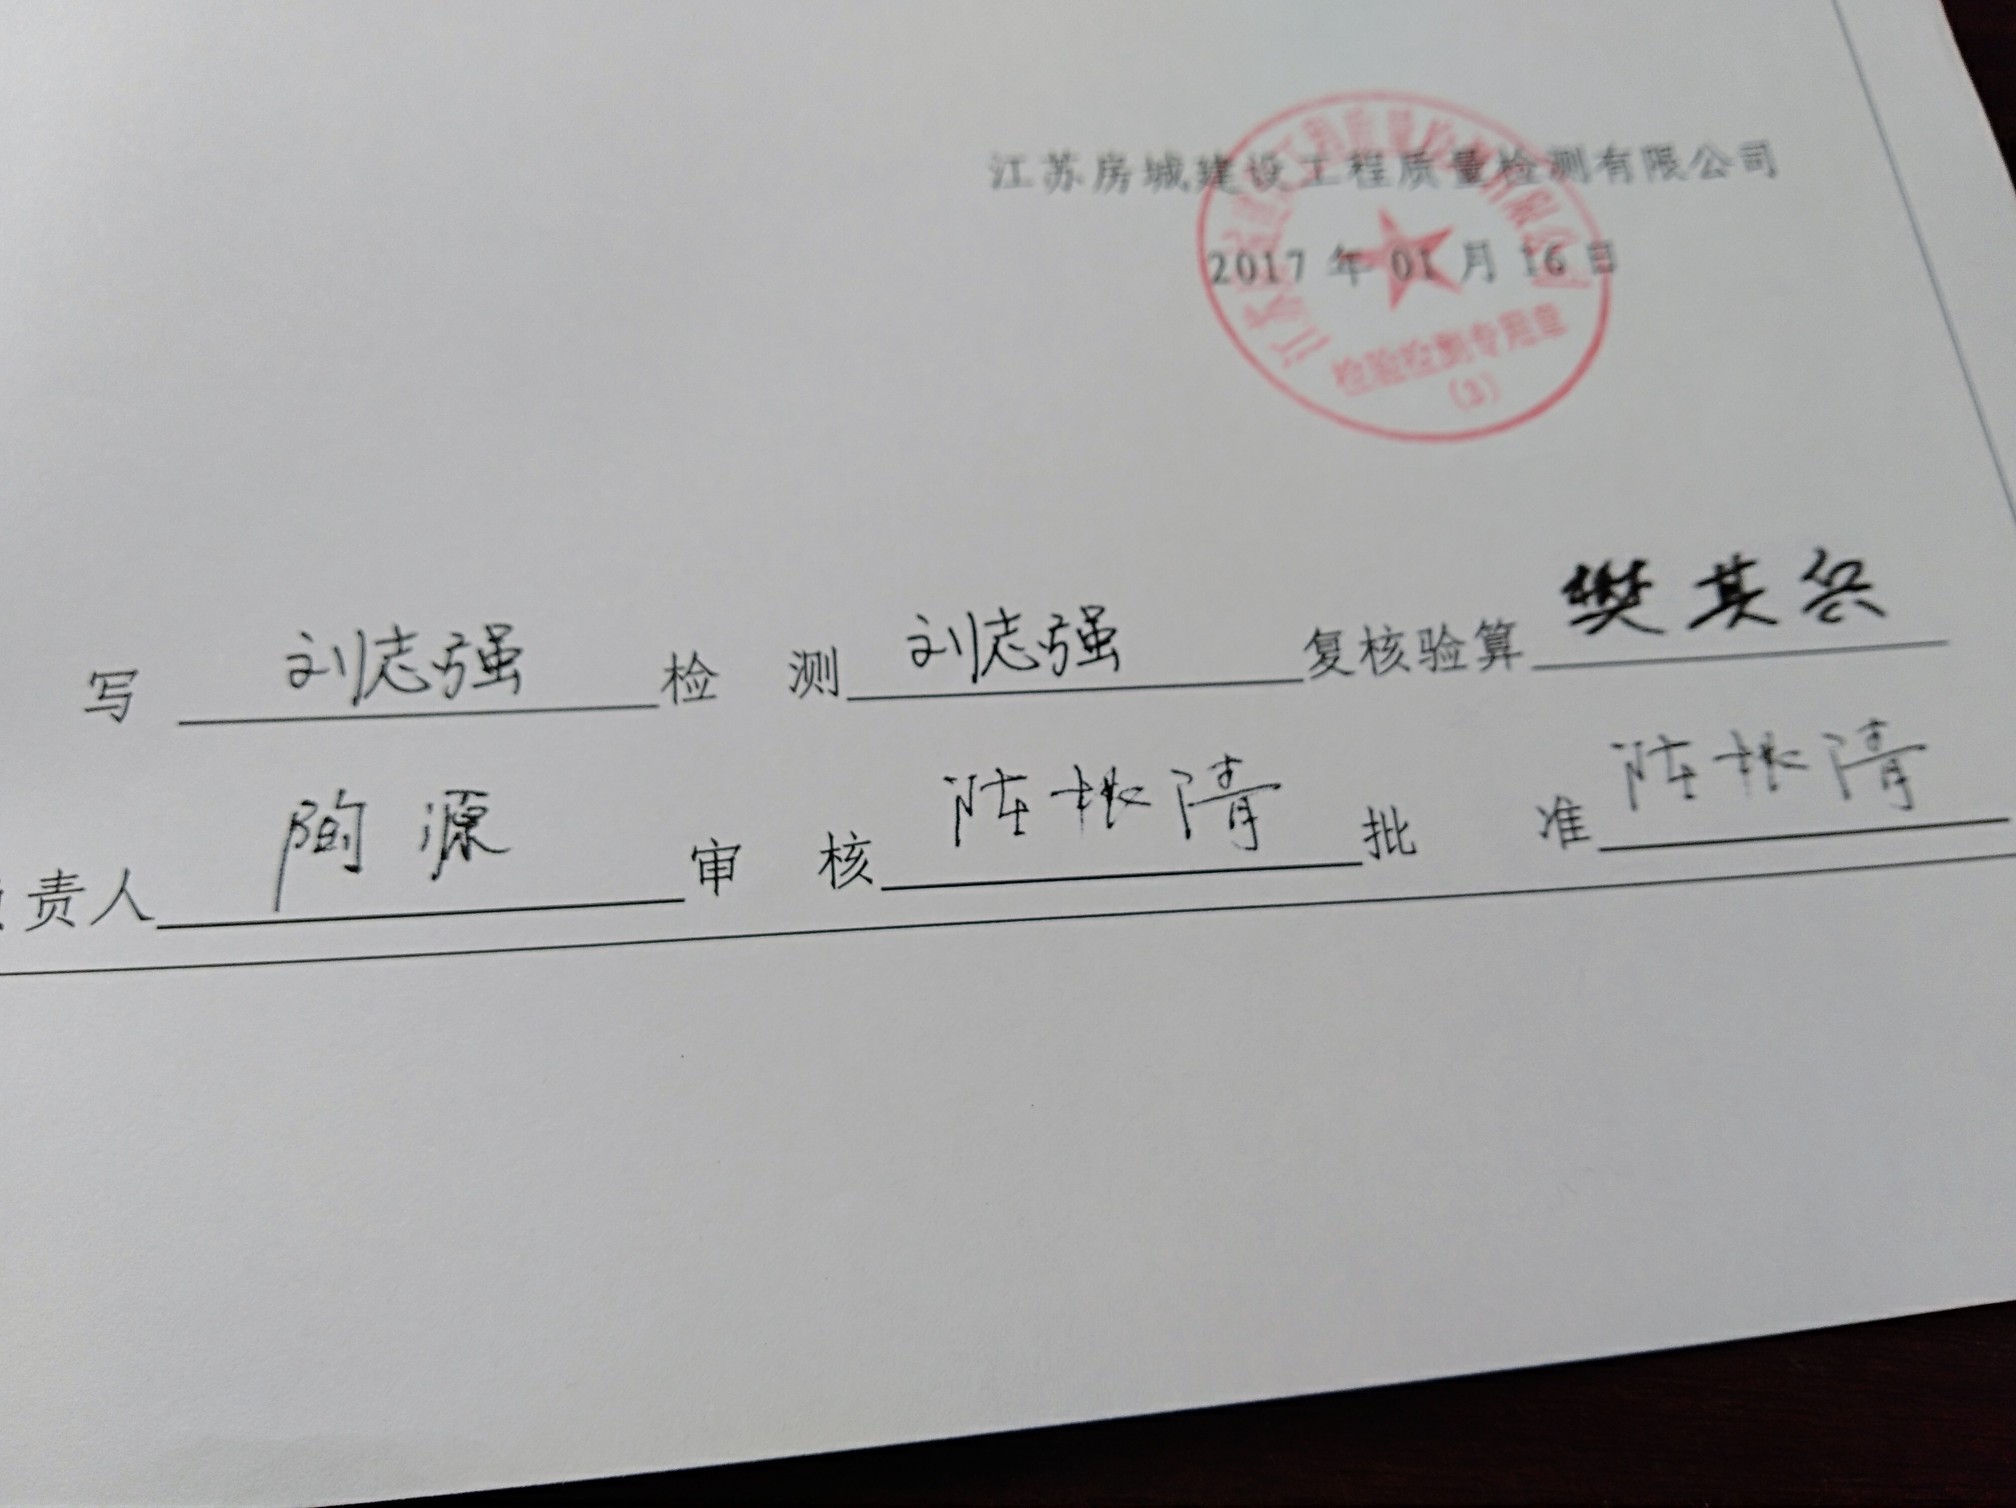 江苏房城建设工程质量检测有限公司
2017 年 01 月 16 日
检验检测专用章
写 刘志强 检 测 刘志强 复核验算 樊其兵
责人 陶源 审 核 陈根清 批 准 陈根清